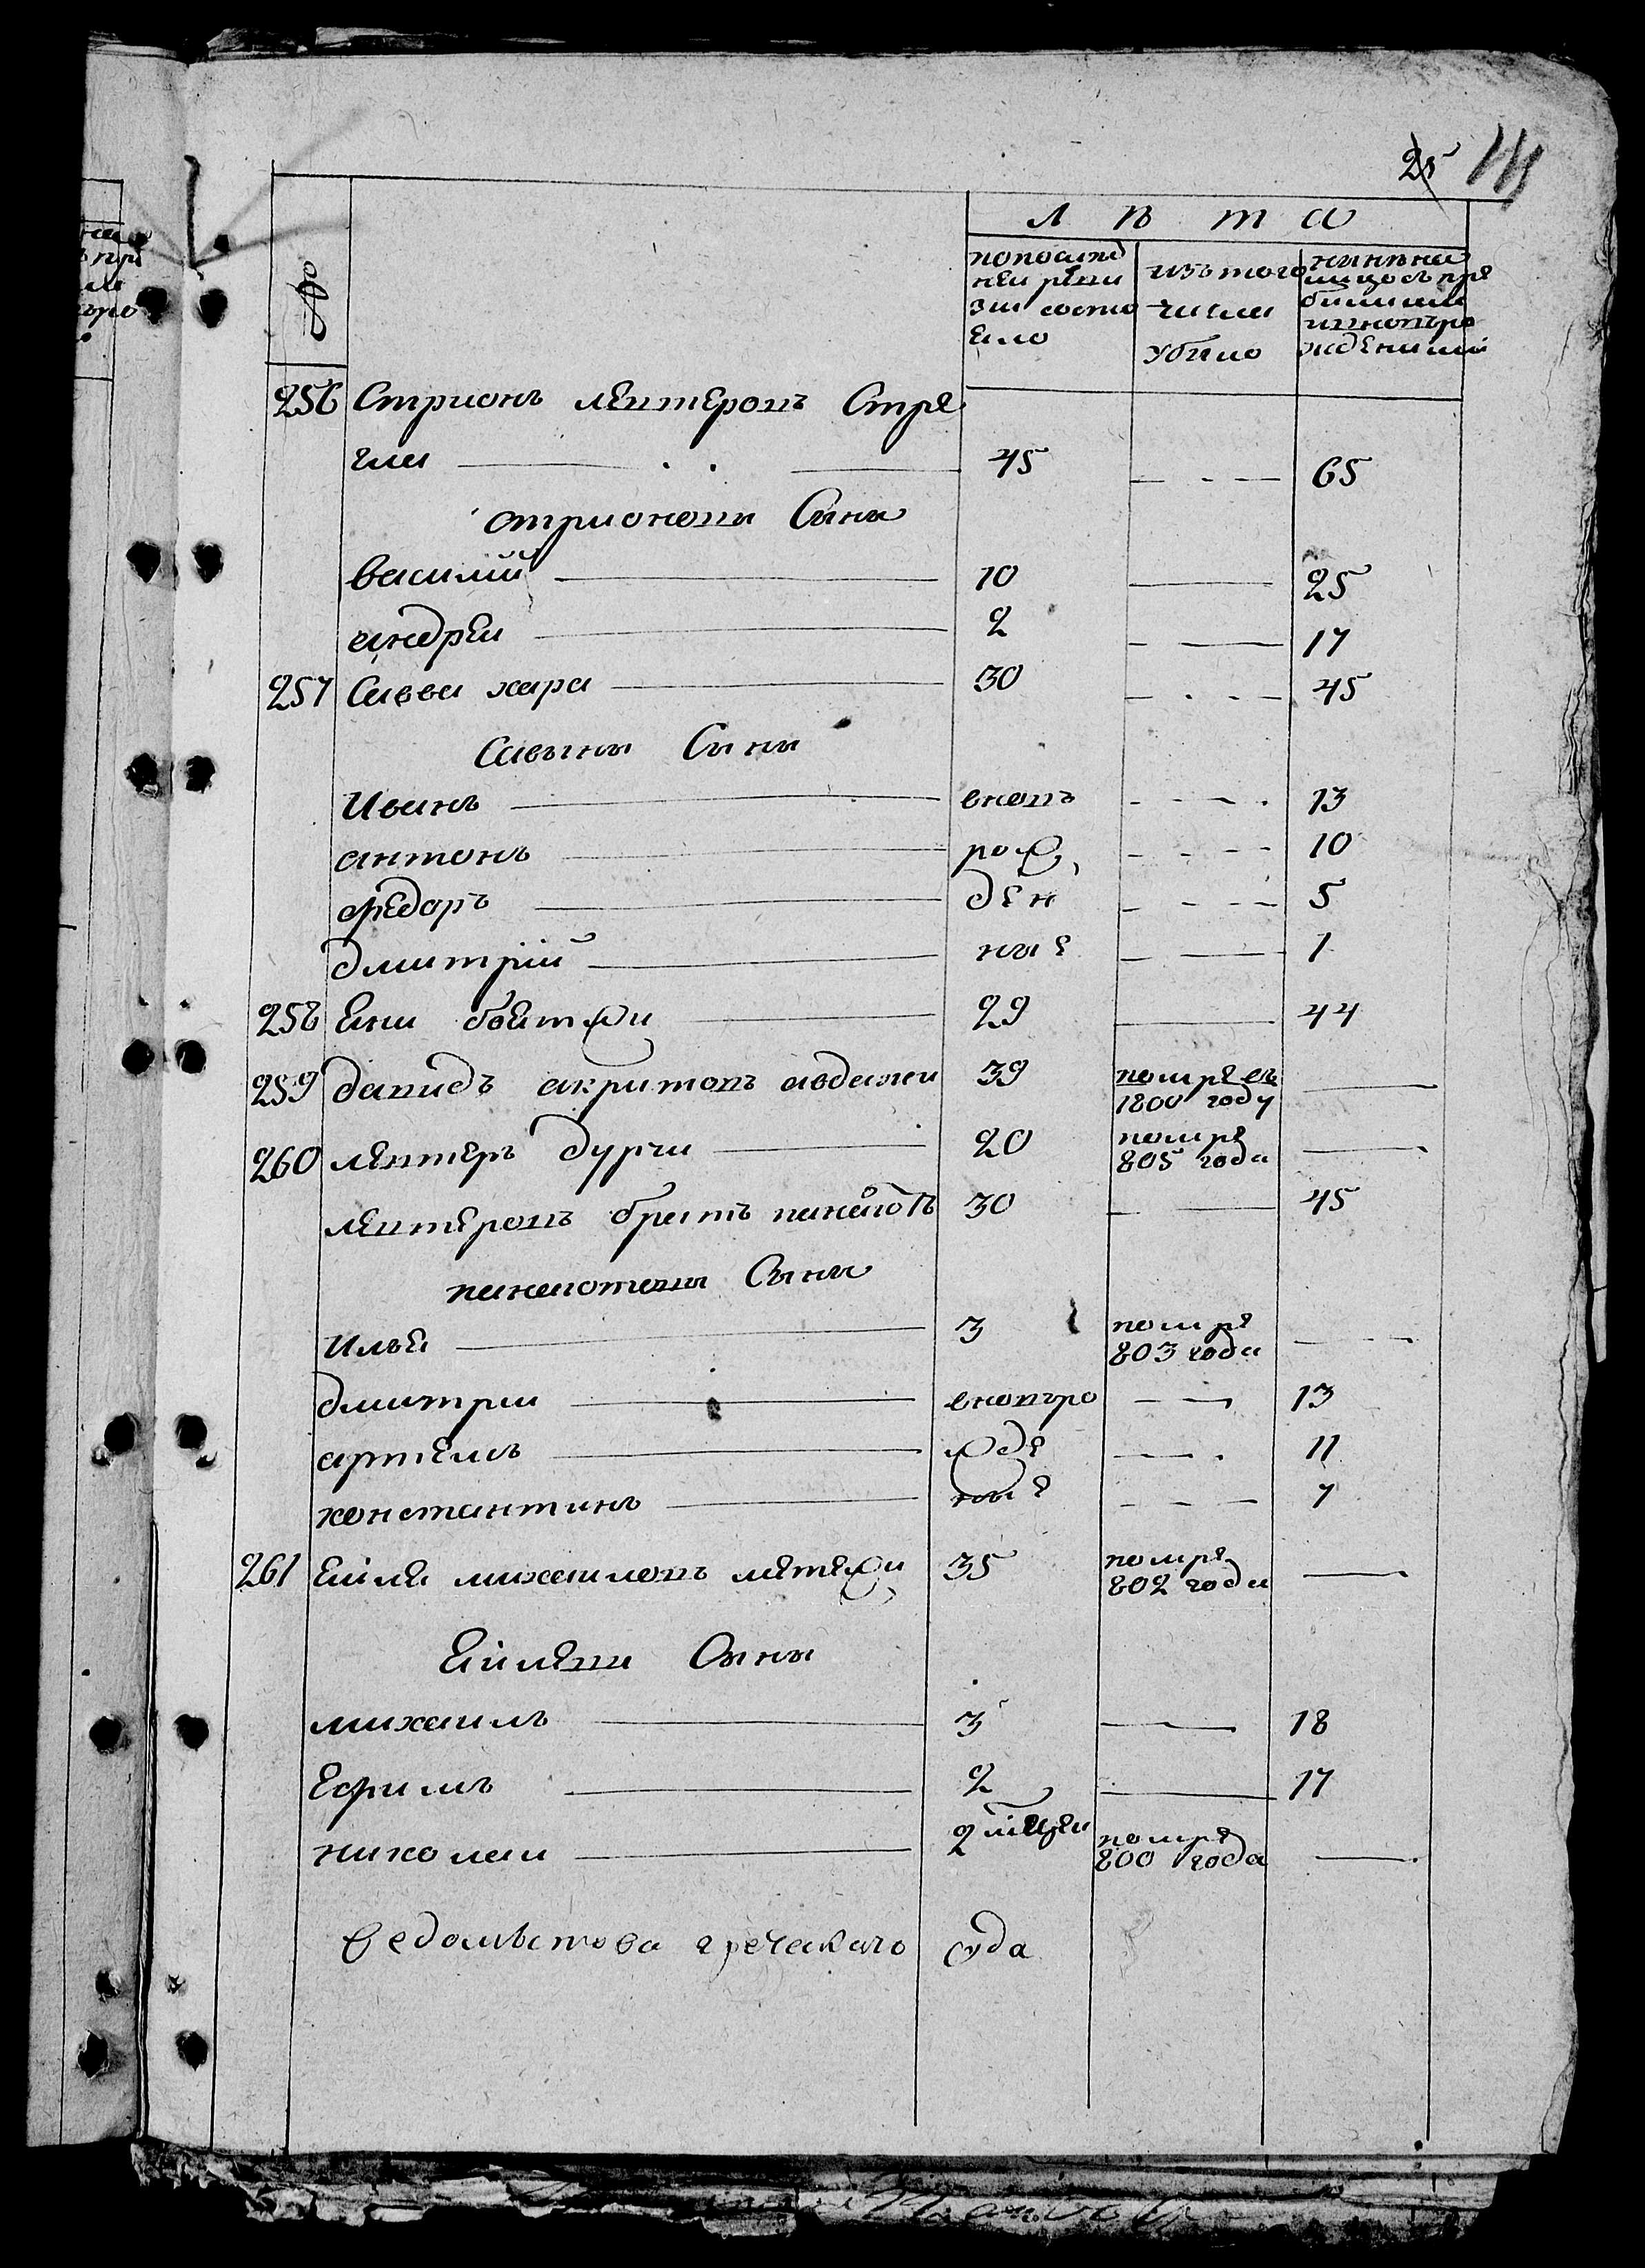 25
Л ѣ т а
№
попослѣд
неи реви
зии состо
яло
изъ того
числа
убыло
нынѣна
лицо съпри
былыми
иновъро
ждеными
256 Стрионъ левтеровъ Стре
гли 45 65
стрионовы Сыны
василий 10 25
андреи 2 17
257 Савва хара 30 45
Савины Сыны
Иванъ вновъ 13
антонъ рож 10
федоръ ден 5
дмитрий ные 1
258 Яни боитжи 29 44
259 давидъ акритовъ авдажи 39 помре въ
1800 году
260 левтеръ дурчи 20 помре
805 года
левтеровъ братъ панаіотъ 30 45
панаиотовы Сыны
илья 3 помре
803 года
дмитрии вновъро 13
артемъ жде 11
константинъ ные 7
261 Ейля михаиловъ метежи 35 помре
802 года
Ейлеви Сыны
михаилъ 3 18
Ефимъ 2 17
николаи 2 мѣцеи помре
800 года
Ведомъства греческаго суда